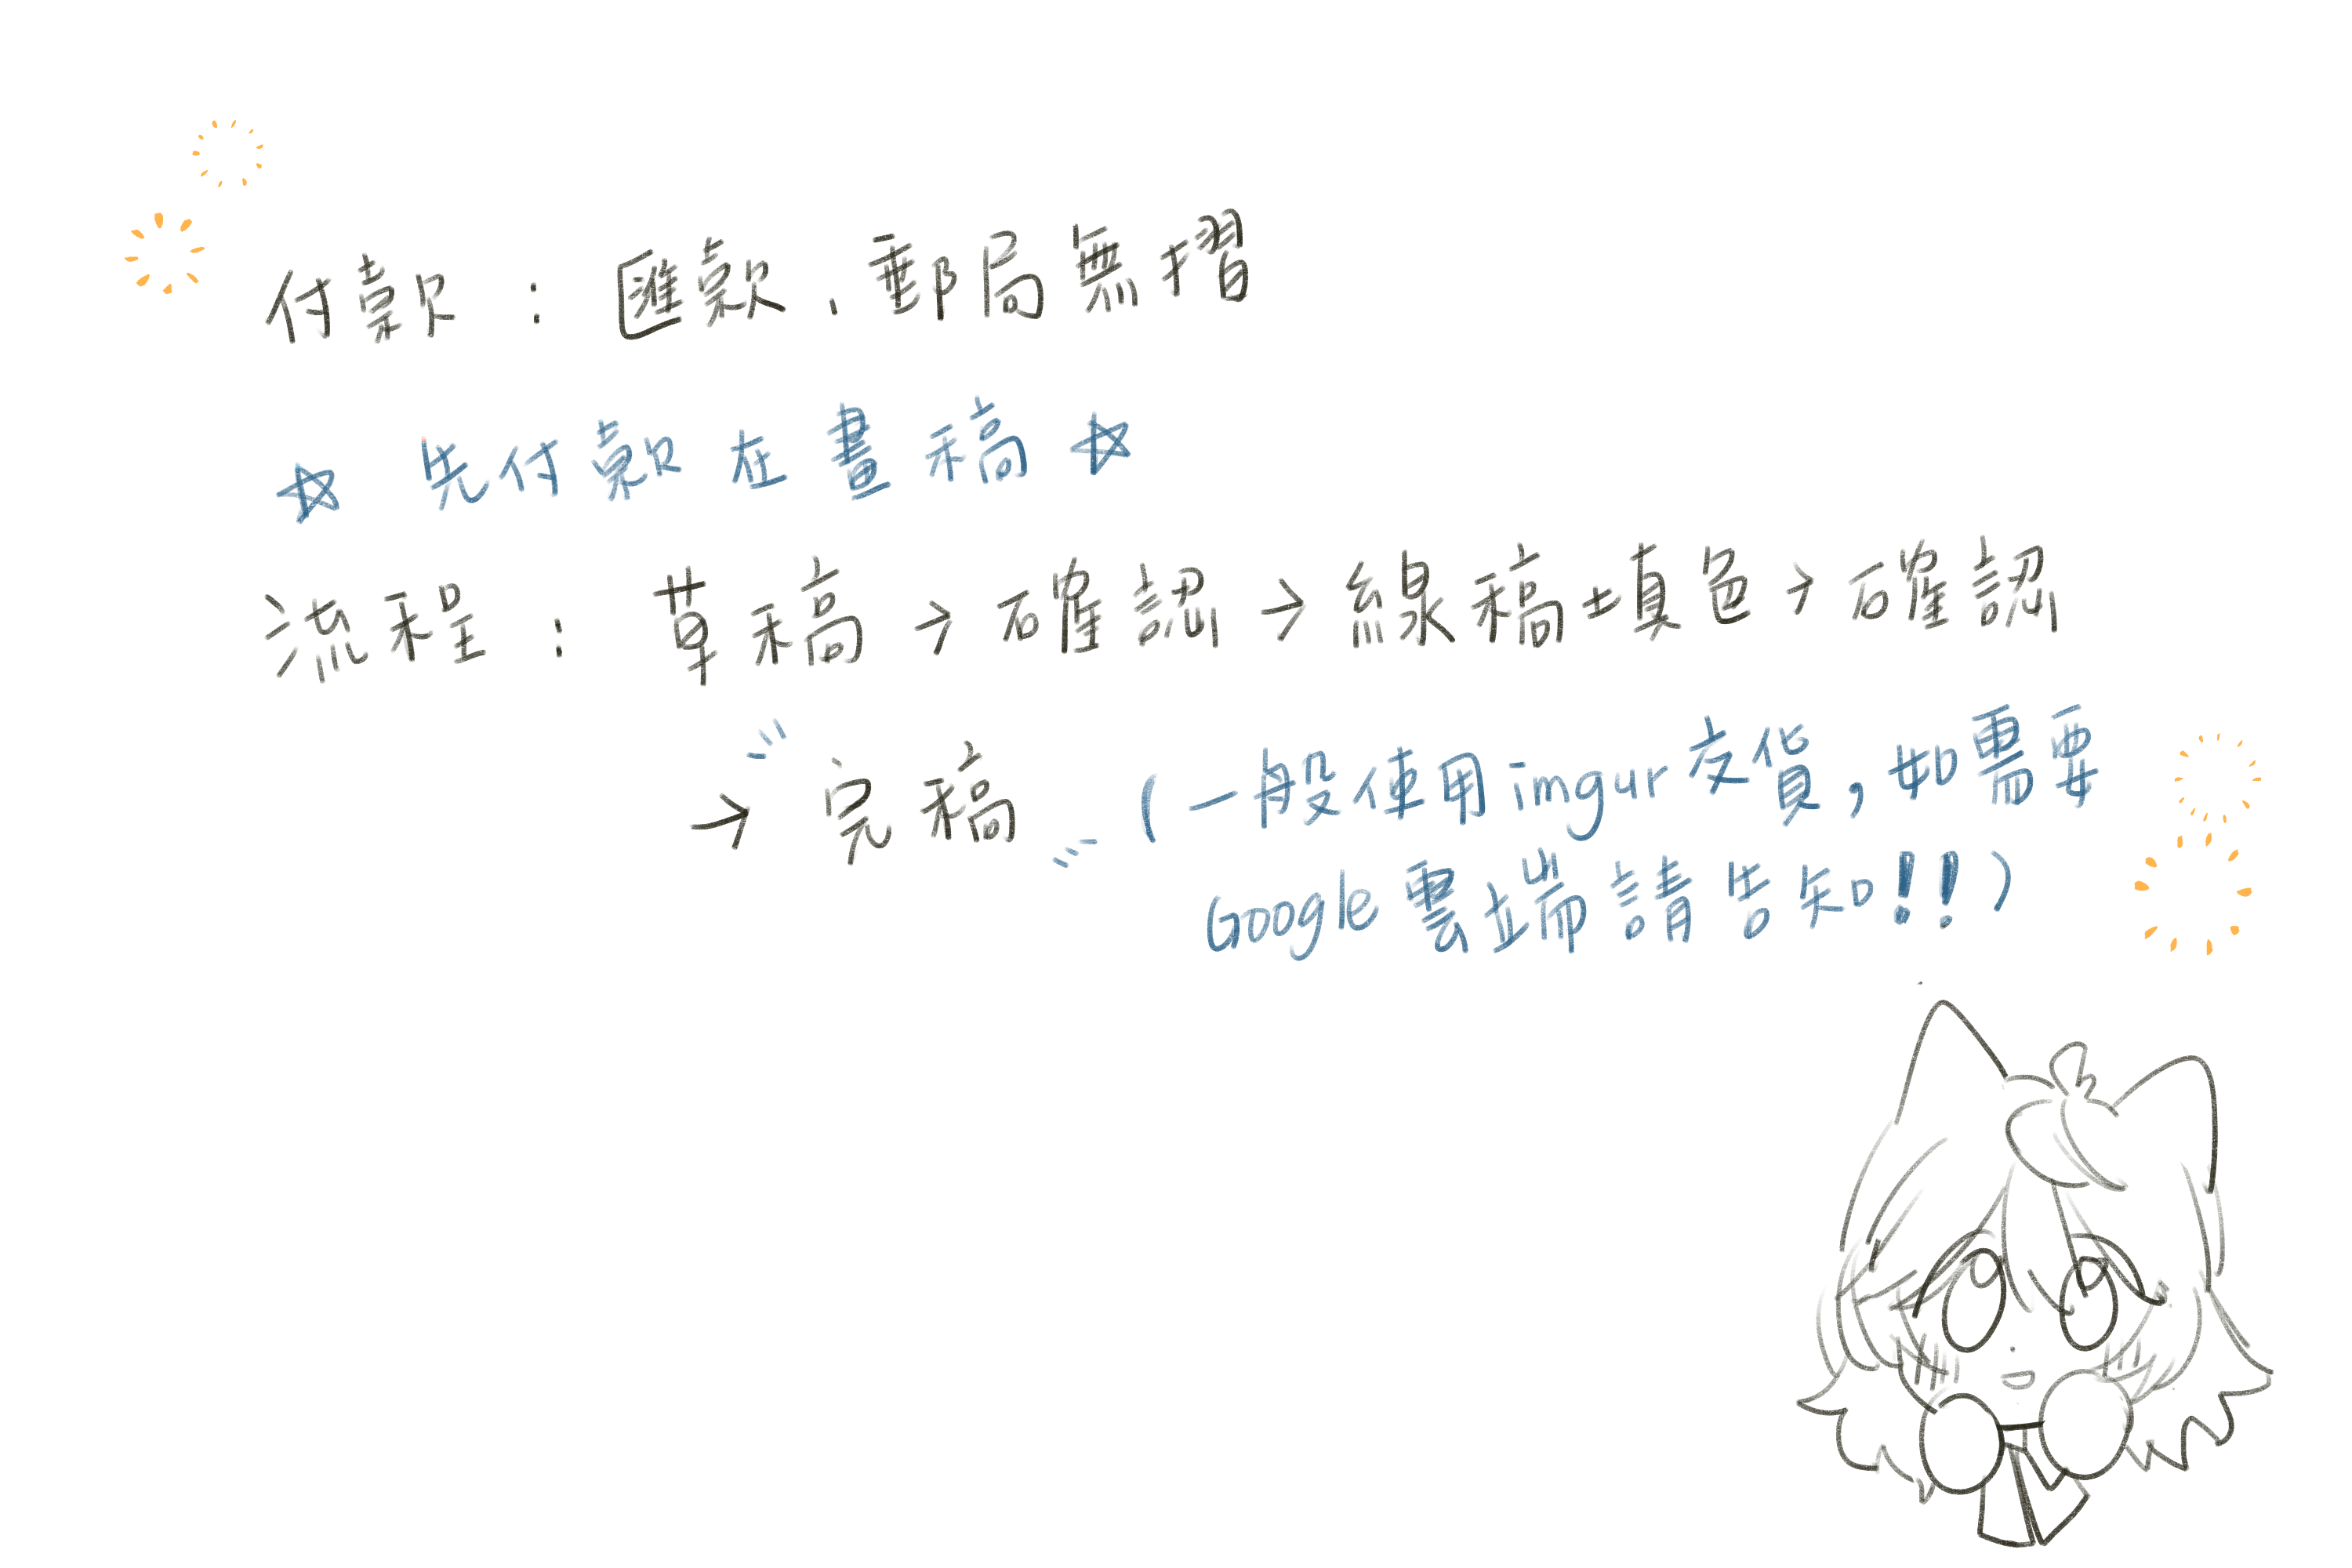 付款：匯款、郵局無摺
☆ 先付款在畫稿 ☆
流程：草稿→確認→線稿填色→確認
→ 完稿 (一般使用imgur交貨，如需要
Google雲端請告知!!)